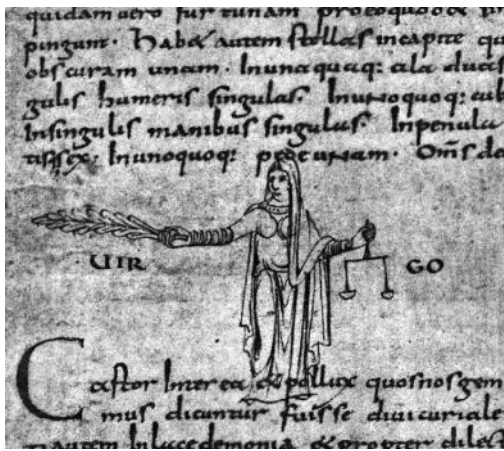 quidam vero furtunam proeoquod &
pingunt. Hab& autem stellas incapite qu
obscuram unam. Inunaquaq: ala duas
gulis humeris singulas. Inunoquoq: cub
Insingulis manibus singulas. Inpenula
sex. Inunoquoq: pede unam. Oms
UIR GO
Castor Interea & pollux quosnosgem
mus dicuntur fuisse
autem Inlacedemonia & propter dilec